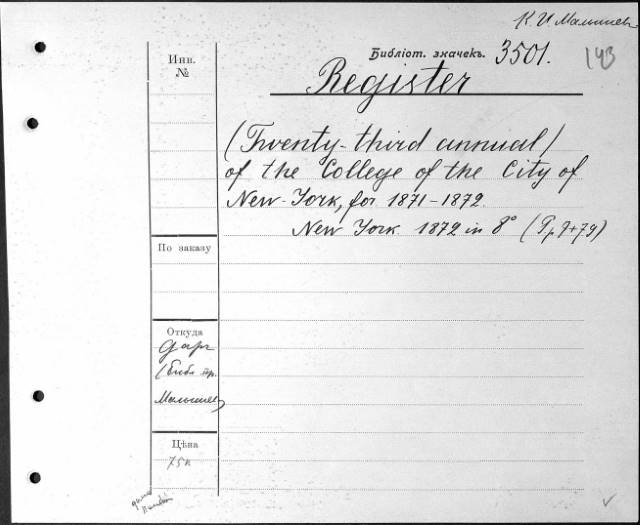 К. И. Малышев
Библіот. значекъ. 3501. 143
Register
(Twenty-third annual)
of the College of the City of
New-York, for 1871-1872.
New York. 1872 in 8° (
Инв.
№
По заказу
Откуда
Даръ
(Библ. пр.
Малышев
Цѣна
75к